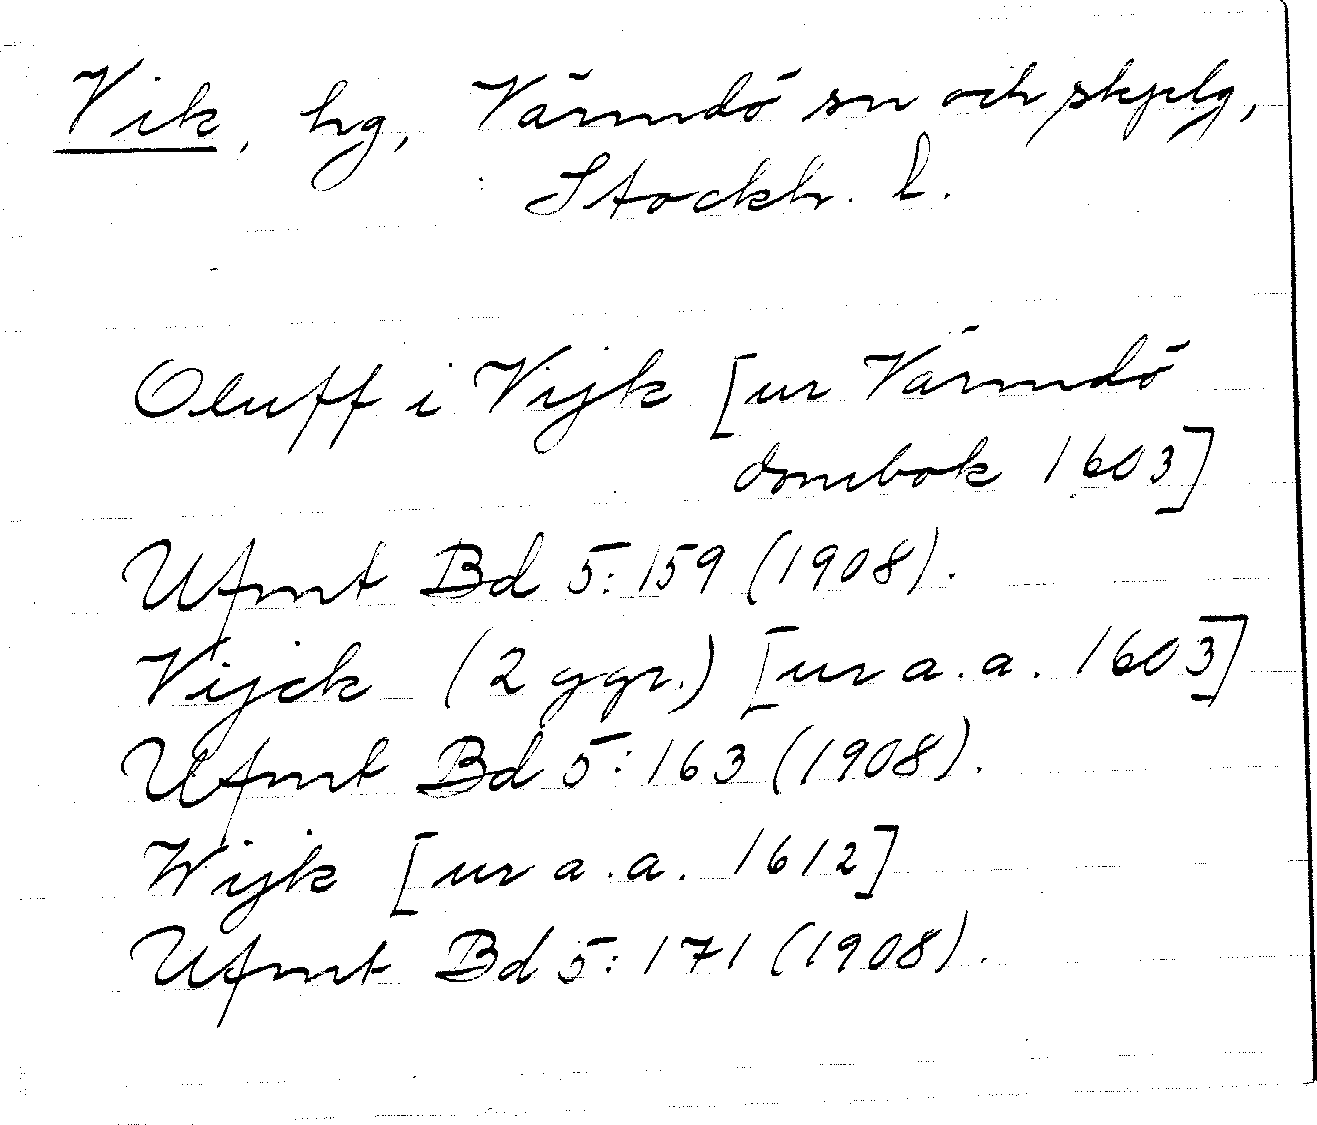 Vik, hg, Värmdö sn och skplg,
Stockh. l.
Oluff i Vijk [ur Värmdö
dombok 1603]
Ufmt Bd 5:159 (1908).
Vijck (2 ggr.) [ur a.a. 1603]
Ufmt Bd 5:163 (1908).
Wijk [ur a.a. 1612]
Ufmt Bd 5:171 (1908).